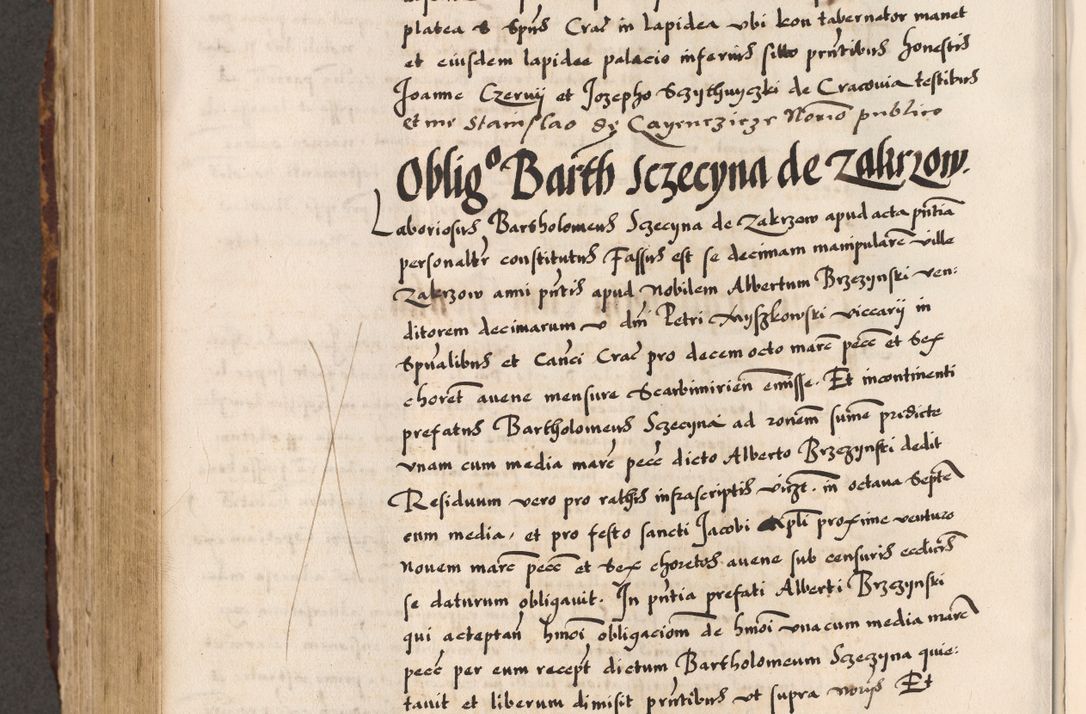 platea S Spũs Crac̃ in lapidea vbi leon tabernator manet
et eiusdem lapidee palacio inferius sitto pñtibus honestis
Joanne Czernij et Jozepho Sczythnyczki de Cracovia testibus
et me Stanislao de Notrio publico
Oblig⁰ Barth Sczecyna de Zakrzow.
Laboriosus Bartholomeus Sczecyna de Zakrzow apud acta pñtia
personaltr constitutus Fassus est se decimam manipularẽ ville
Zakrzow anni pñtis apud Nobilem Albertum Brzezynski ven:
ditorem decimarum v dm̃i Petri Myszkowski viccarij in
Spũalibus et Canci Crac̃ pro decem octo marc̃ pecc̃ et Sex
choret̃ auene mensure Scarbimirieñ emisse. Et incontinenti
prefatus Bartholomeus Sczecyna ad ronem̃ sum̃e predicte
vnam cum media marc̃ pecc̃ dicto Alberto Brzezynski dedit
Residuum vero pro rathis infrascriptis vidzt. in octava Septẽ
cum media, et pro festo sancti Jacobi Apl̃i proxime venturo
novem marc̃ pecc̃ et Sex choretos auene sub censuris ecclicis
se daturum obligauit. In pñtia prefati Alberti Brzezynski
qui acceptañ hm̃oi obligaciom̃ de hm̃oi vnacum media marc̃
pecc̃ per eum recept̃ dictum Bartholomeum Sczeczyna quie:
tauit et liberum dimisit pñtibus vt supra Et